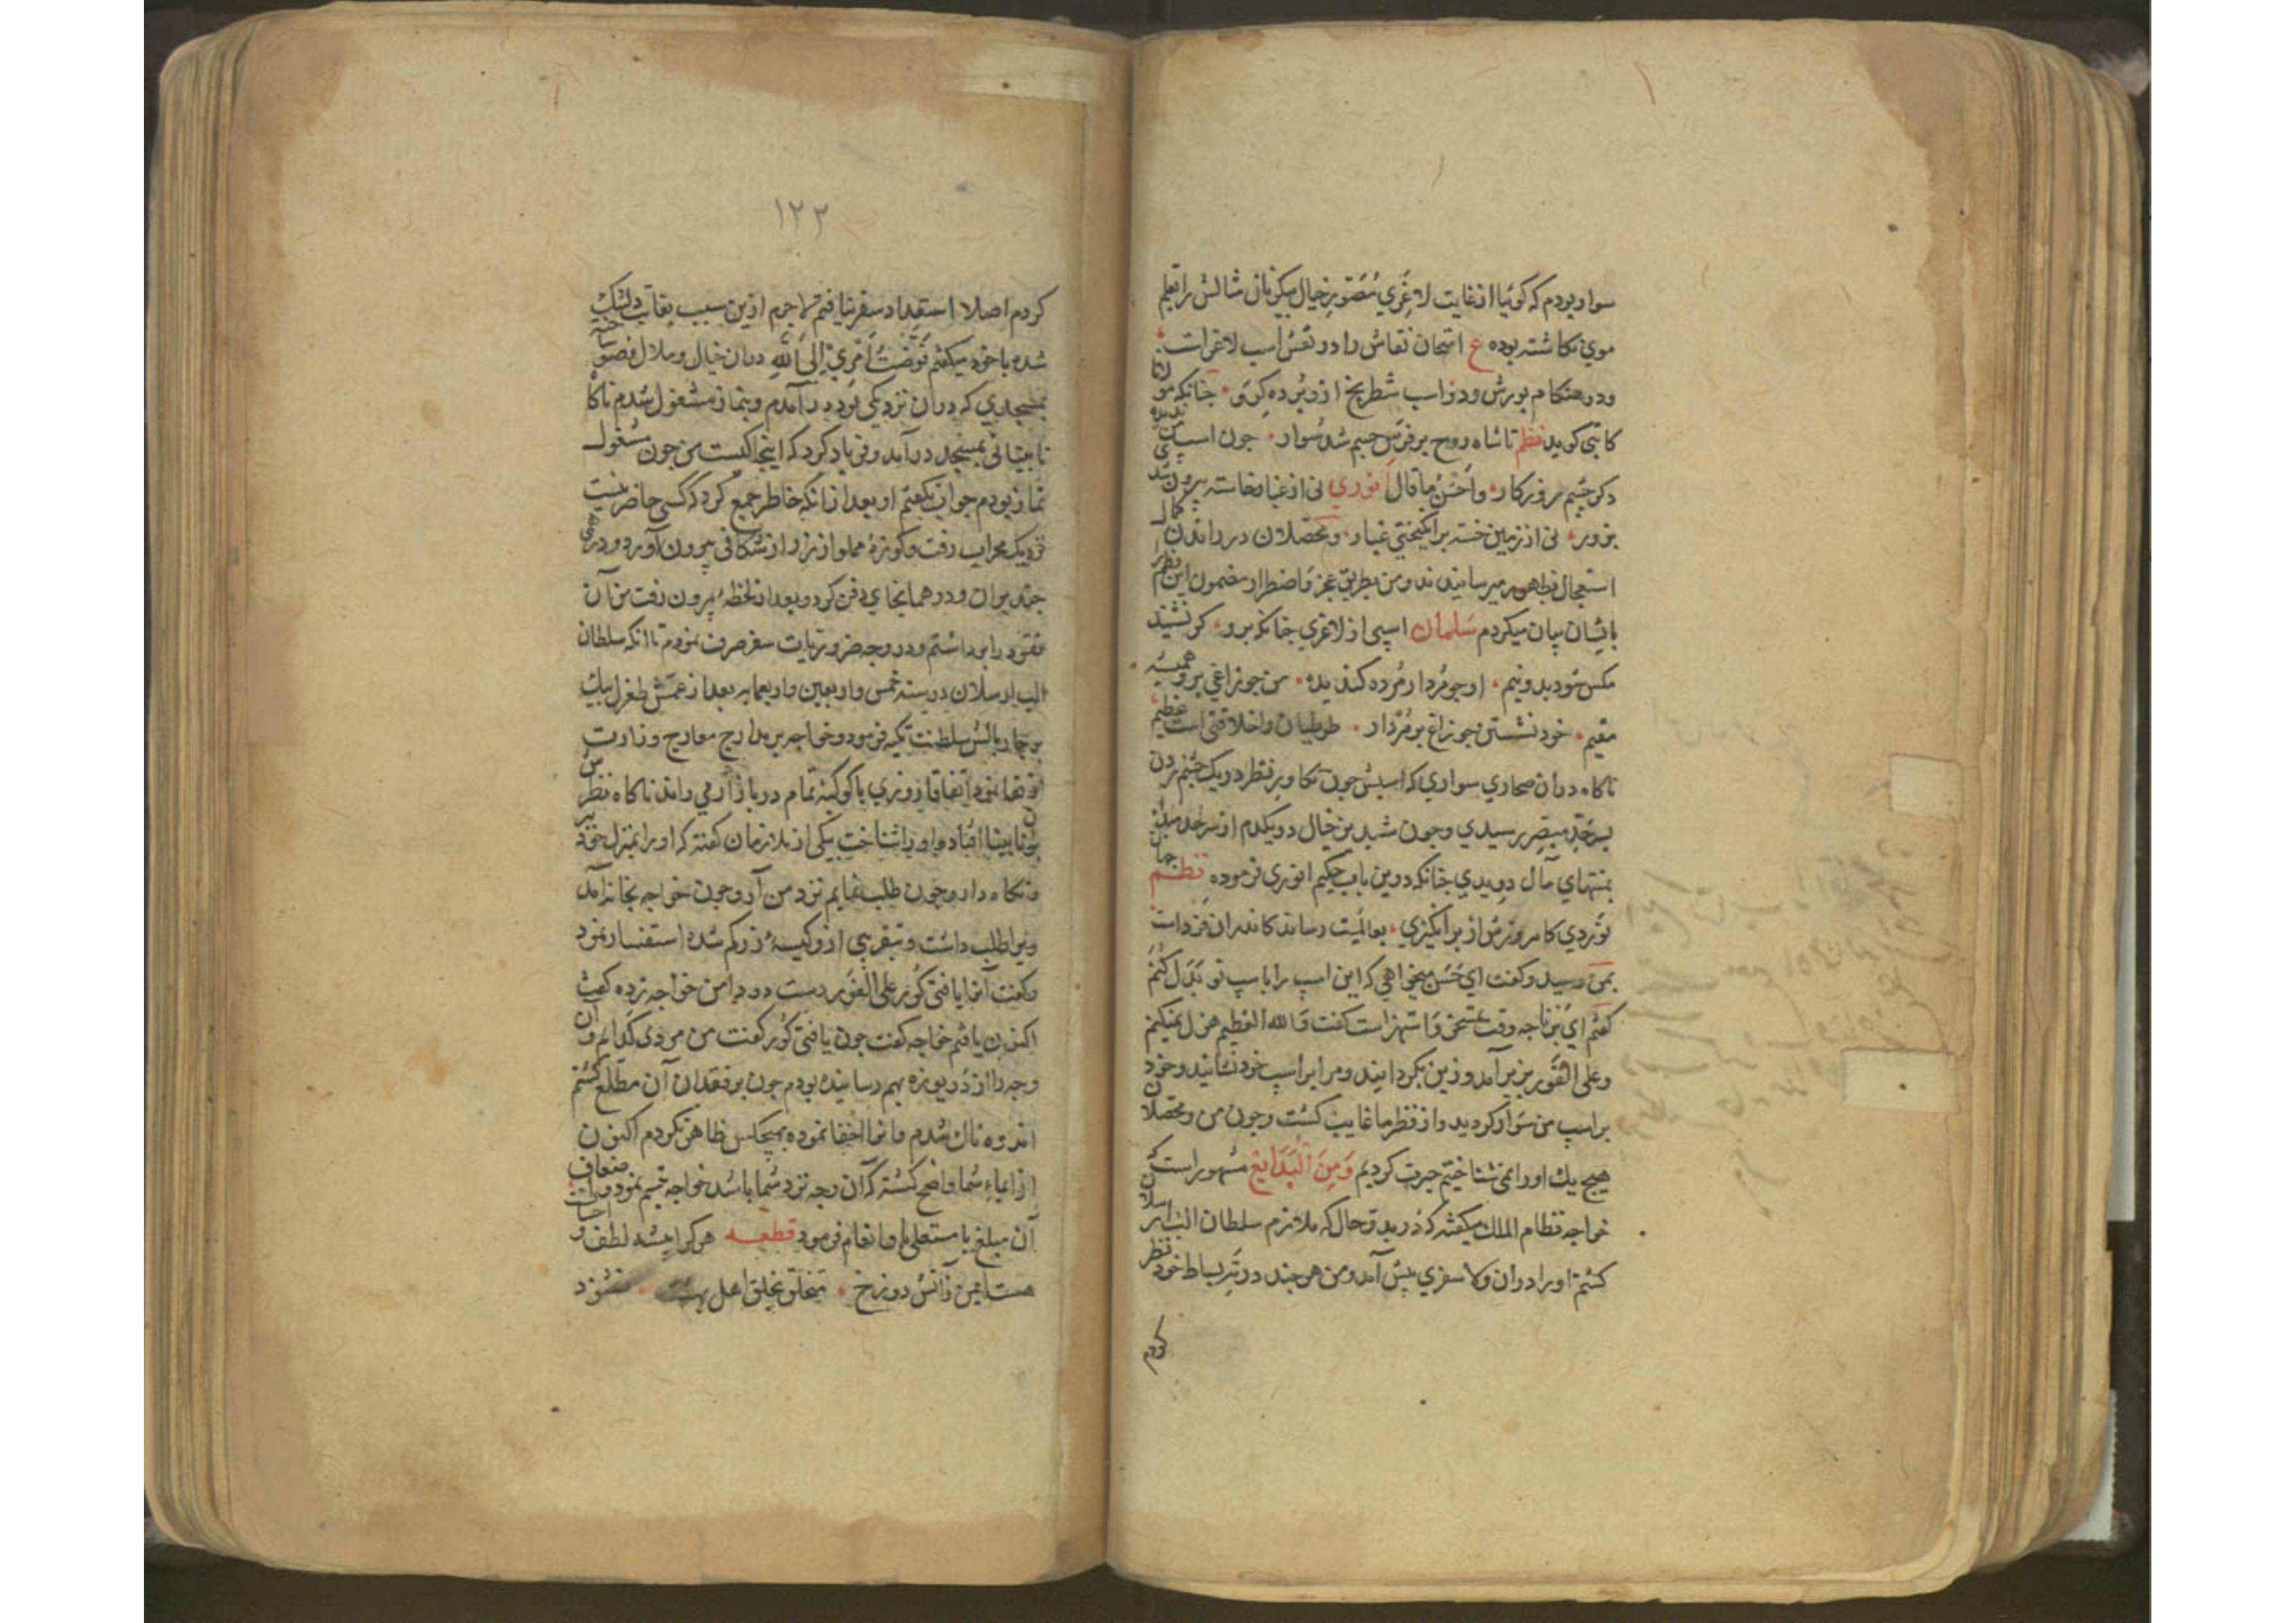 سوار بودم که کوئیا از غایت لاغری مُصَوّرِ خیال پیکر بان مثالش را بقلم
موی نکاشته بوده ع امتحان نقاش را در نقش اسب لاغرات
ودر هنکام یورش ودو اسب شطرنج ازو برده کِرَو جنانکه مولانا
کاتبی کوید نظم تا شاه روح بر فرس جسم شد سوار جون اسب من ندیده
دکر جشم روزکار واَحْسَنُ ما قال انوری نی از غبار خاسته بیرون شدی
بزور نی از زمین خسته برانکیختی غبار ومحصلان در راندن کمال
استعجال بظاهر میرسانیدند ومن بطریق عجز وَاضطرار مضمون این نظم
با ایشان بیان میکردم سلمان اسپی از لاغری جنانکه برو کر نشیند
مکس شود بدو نیم او جو مُردار مُرده کندیده من جو زاغی برو همیشه
مقیم خود نشستن جو زاغ بر مُرْدار طوطیان را خلاقتی است عظیم
ناکاه دران صحاری سواری که اسبش جون تکاور نظر در یک جشم زدن
بسرحد مبصر رسیدی وجون شبدیز خیال دو یکدم از سرحد مبدء
بمنتهای مآل دویدی جنانکه درین باب حکیم انوری فرموده نظم جهان
نَوَردی کامروزش ار برانکیزی بعالمیت رساند کاندران فرداست
بمن رسید وکفت ای حَسَن میخواهی که این اسپ را باسپ تو بَدَل کُنَم
کفتم ای بُرنا جه وقت تمسخر وَاستهزاست کفت وَالله العظیم هزل نمیکنم
وعلی الفَور بزیر آمد وزین بکردانید ومرا بر اسپ خود نشانید وخود
بر اسپ من سَوار کردید واز نظر ما غایب کشت وجون من ومحصلان
هیج یک اورا نمی شناختیم حیرت کردیم وَمِنَ الْبَدَایِع مشهور است که
خواجه نظام الملک میکفته که در بدو حال که ملازم سلطان الب ارسلان
کشتم اورا دران ولا سفری پیش آمد ومن هر جند در زیر بساط خود نظر
کردم
۱۲۳
کردم اصلا استعداد سفر نیافتم لاجرم ازین سبب بغایت دلتنک
شده با خود میکفتم فَوَّضْتُ اَمْرِی اِلی اَللّٰهِ دران خیال وملال فصوصا
بمسجدی که دران نزدیکی بود در آمدم وبنماز مشغول شدم ناکاه
نابینائی بمسجد در آمد وفریاد کرد که اینجا کیست من جون مشغول
نماز بودم جواب نکفتم او بعد از انکه خاطر جمع کرد که کسی حاضر نیست
نزدیک محراب رفت وکوزهٔ مملو از زر از شکافی بیرون آورد ودرمی
جند بران ودر همانجای دفن کرد وبعد از لحظهٔ بیرون رفت من آن
نقود را برداشتم ودر وجه ضروریات سفر صرف نمودم تا آنکه سلطان
الب ارسلان در سنه خمس واربعین واربعمایه بعد از عمّش طغرل بیک
بر جار بالش سلطنت تکیه فرمود وخواجه بر مدارج معارج وزارت
ارتقا نمود اتفاقا روزی با کوکبهٔ تمام در بازار می راند ناکاه نظرش
بر نابینا افتاد واورا شناخت یکی از ملازمان کفته که اورا بمنزل خود بر
ونکاه دار وجون طلب نمایم نزد من آر وجون خواجه بخانه آمد
ویرا طلب داشت وبتقریبی ازو کیسهٔ زر کم شده استفسار نمود
وکفت آنرا یافتی کُور علی الفَور دست در دامن خواجه زده کفت
اکنون یافتم خواجه کفت جون یافتی کُور کفت من مردی کدایم وآن
وجه را از دَریوزه بهم رسانیده بودم جون بر فقدان آن مطّلع کشتم
اندوه ناک شدم وانرا اخفا نموده بهیجکس ظاهر نکردم اکنون
از ایماء شما واضح کشته که آن وجه نزد شما باشد خواجه تبسم نمود وضعاف
آن مبلغ با مستغلی باو انعام فرمود قطعه هر کرا باشد لطف واحسان
هست ایمن زآتش دوزخ متخلّق بخلق اهل بهشت نشود